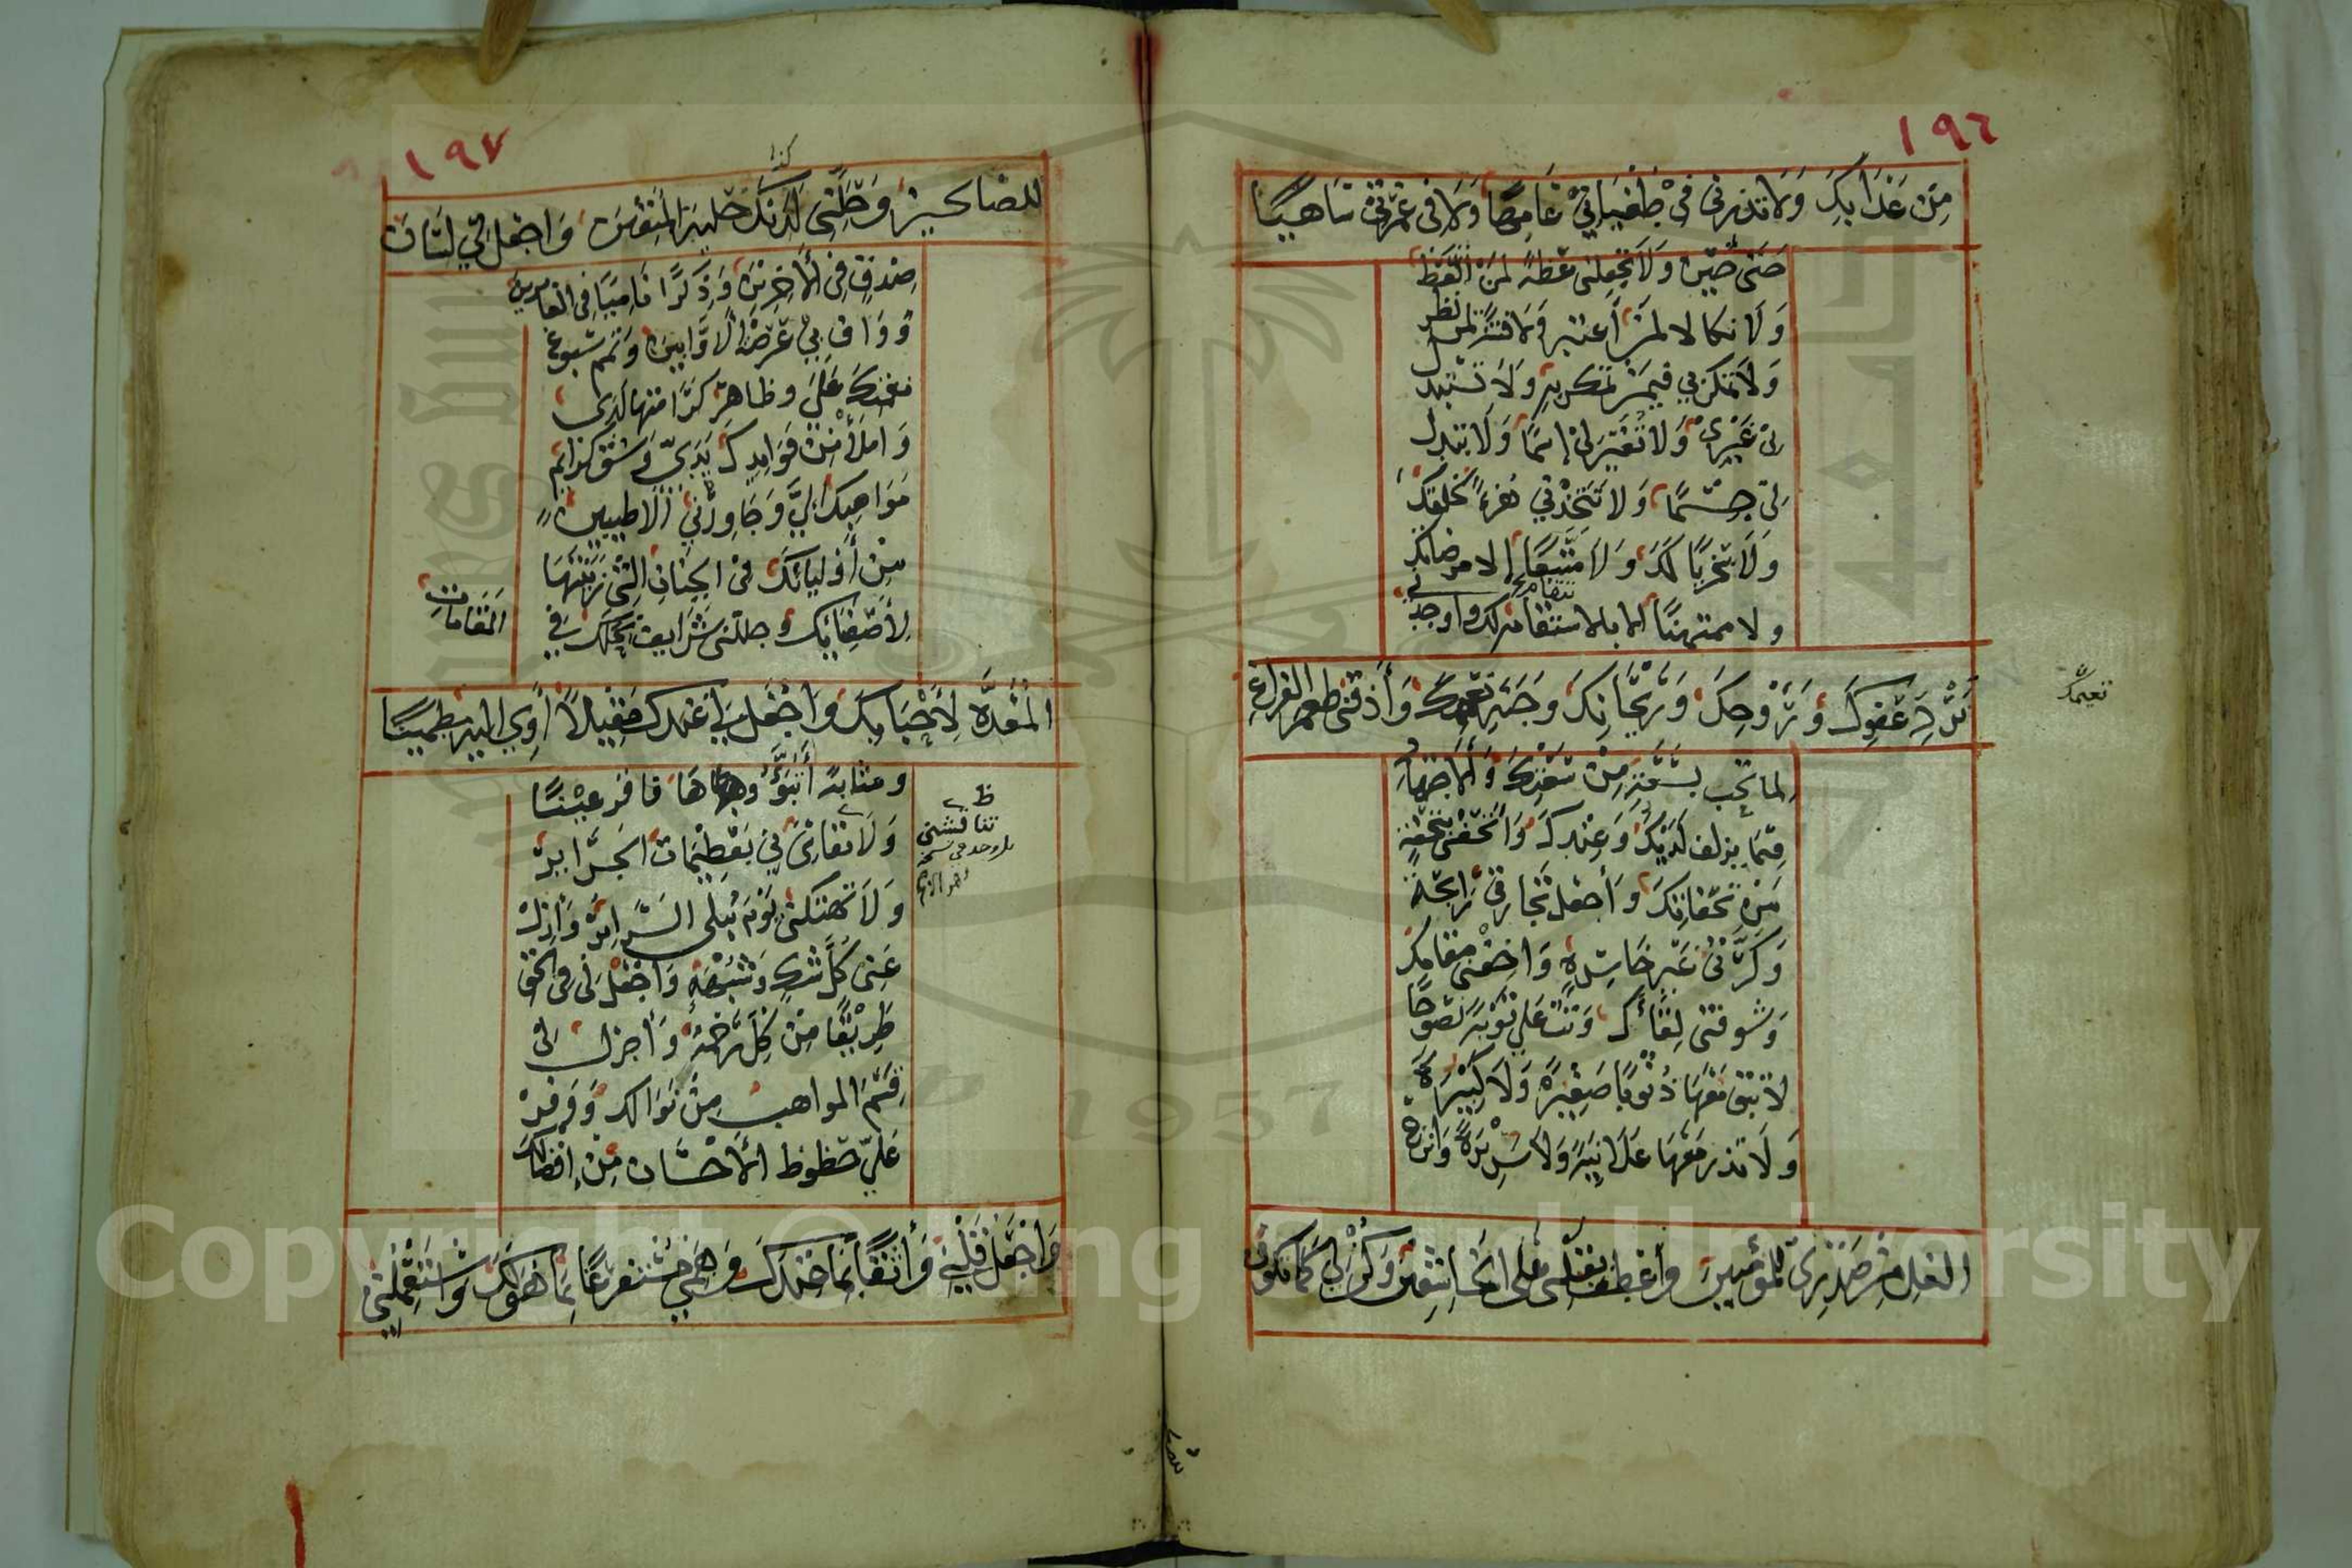 ١٩٦
مِنْ عَذَابِكَ وَلَا تَذَرْنِي فِي طُغْيَانِي عَامِهًا وَلَا فِي غَمْرَتِي سَاهِيًا
حَتّى حِيْن وَلَا تَجْعلنى عظةً لمَنْ اتَّعَظَ
وَلَا نكالا لمَن أعتبر وَلا فتنةً لمن نظر
وَلَا تمكر بي فيمَنْ تمكر به وَلَا تَسْتبدل
بى غَيْرِى وَلَا تُغَيّر لى إسمًا وَلَا تبدل
لى جِسْمًا وَلَا تَتَّخِذْنِي هُزءًا لخلقك
وَلَا سُخْرِيًا لَكَ وَلَا مُتَّبِعًا إلا مرضاتك
ولا ممتهنًا إلا بالاستقام لك واوجدني
بَرْدَ عَفوِكَ وَرَوْحِكَ وَرَيْحَانِكَ وَجَنّةِ نعيمك وَأَذِقْنى طعم الفراغ
نعيمك
لما تحب بسَعَةٍ مِنْ سَعَتِكَ وَالاجتهاد
فيما يزلف لَدَيْكَ وَعِنْدكَ وَاتحفنى بتحفةٍ
مِنْ تحفاتِكَ وَأجعل تجارتى رَابحَةً
وَكَرَّتى غَيْرَ خَاسِرةٍ وَاخِفْنى مقامك
وَشوقنى لِقَاءَكَ وَتُبْ عَلي توبةً نصوحًا
لا تبق مَعَهَا ذُنوبًا صَغِيْرَةً وَلَا كَبِيْرَةً
وَلَا تذر مَعَهَا عَلَانِيَةً وَلَا سَرِيْرَةً وَانزع
الغِل مِنْ صَدْرِي لِلْمُؤْمِنِينَ وَأعْطف بقلبى عَلى الخَاشِعِينَ وَكُنْ لِي كَمَا تَكُونُ
١٩٧
كذا
للصَالحين وَحَلّنِى لَدَيْكَ حليةَ المتَّقِينَ وَاجْعَلْ لِي لِسَانَ
صِدْقٍ فِي الْآخِرِينَ وَذِكرًا نَامِيًا فِى الغابرين
وَوَافِ بِي عَرْصَةَ الأوّابين وَتمم سُبوغ
نعمتك عَلَيَّ وظاهِر كَرَامتها لَدَى
وَاملأ مِنْ فَوَايدك يَدَيّ وَسُقْ كرايم
مَوَاهِبِكَ إِليَّ وَجَاوِرْنِي الاطيبين
مِنْ أَوْلِيَائِكَ فى الجِنَانِ التِي زَيّنْتَهَا
لِأصْفِيَائِكَ وجللنى شَرَايفَ نِحَلِكَ فِي
المَقَامَاتِ
المُعَدَّةِ لِأَحْبَابِكَ وَاجْعَلْ لِي عندك مَقِيلاً آوِي اليه مُطْمَئِنًا
ومثابةً أَتَبَوَّءُهَا فاقر عَيْنًا
وَلَا تقايسنى فِي بعظيمات الجَرَايِر
وَلَا تُهلكنى يَوْمَ تُبْلَى السَّرايِر وَأزِلْ
عَنِى كُلّ شكٍ وَشُبْهَةٍ وَاجْعَلْ لِى فِى الحق
طَرِيْقًا مِنْ كُلِّ رَحْمَةٍ وَأجزل لى
قِسَمَ المواهب مِنْ نَوَالك وَوَفِّرْ
عَلَيّ حظوظ الأِحْسَان مِنْ إِفضالِكَ
وَاجْعَلْ قَلْبِي وَاثِقًا بِمَا عِنْدَكَ وَهَمِّي مُسْتَفْرغًا لِمَا هُوَلَكَ وَاسْتَعْمِلْنِي